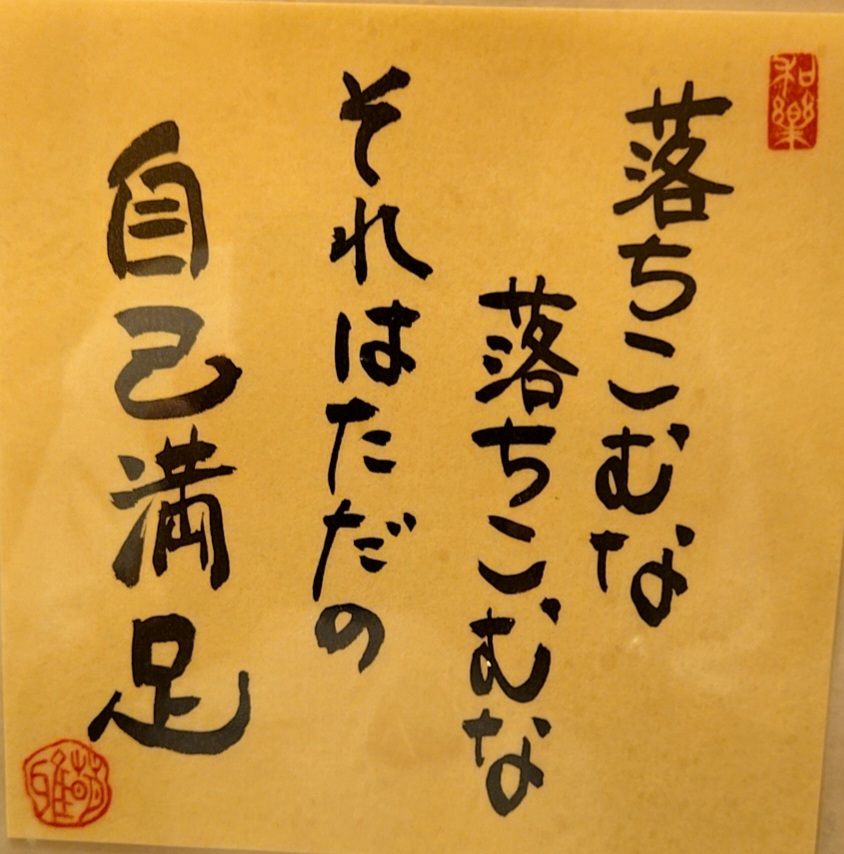 和樂
落ちこむな
落ちこむな
それはただの
自己満足